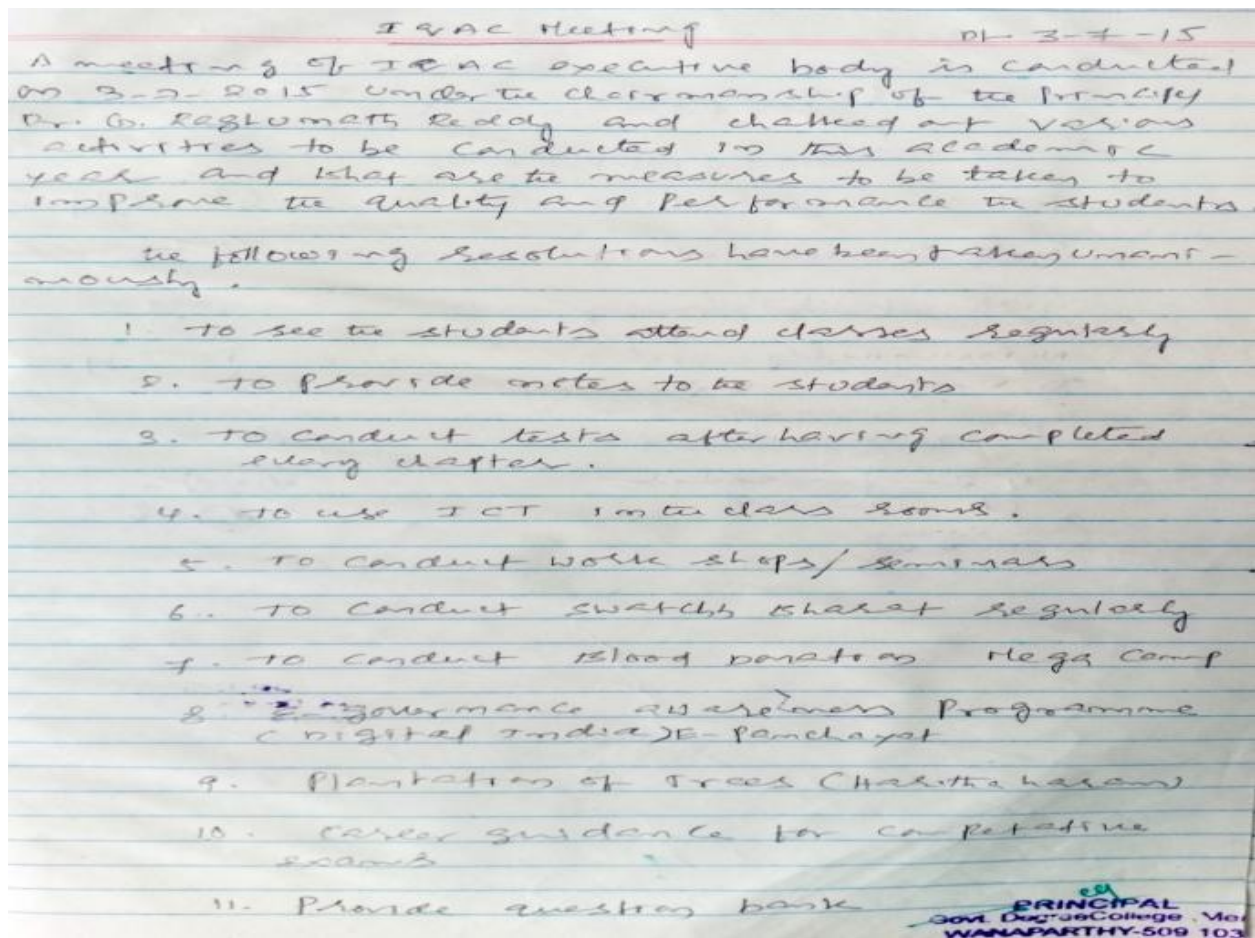 IQAC Meeting Dt- 3-7-15
A meeting of IQAC executive body is conducted
on 3-7-2015 under the chairmanship of the Principl
Dr. G. Raghunath Reddy and chalked out various
activities to be conducted in this academic
year and what are the measures to be taken to
improve the quality and performance the students
the following resolutions have been taken unani-
mously.
1. To see the students attend classes regularly
2. To provide notes to the students
3. To conduct tests after having completed
every chapter.
4. To use ICT in the class rooms.
5. To conduct work shops/ seminars
6. To conduct swatchh Bharat regularly
7. To conduct Blood Donation Mega Camp
8. E-governance awareness Programme
(Digital India) E-Panchayat
9. Plantation of Trees (Haritha haram)
10. Career guidance for competative
exams
11. Provide question bank
PRINCIPAL
Govt. Degree College
WANAPARTHY-509 103